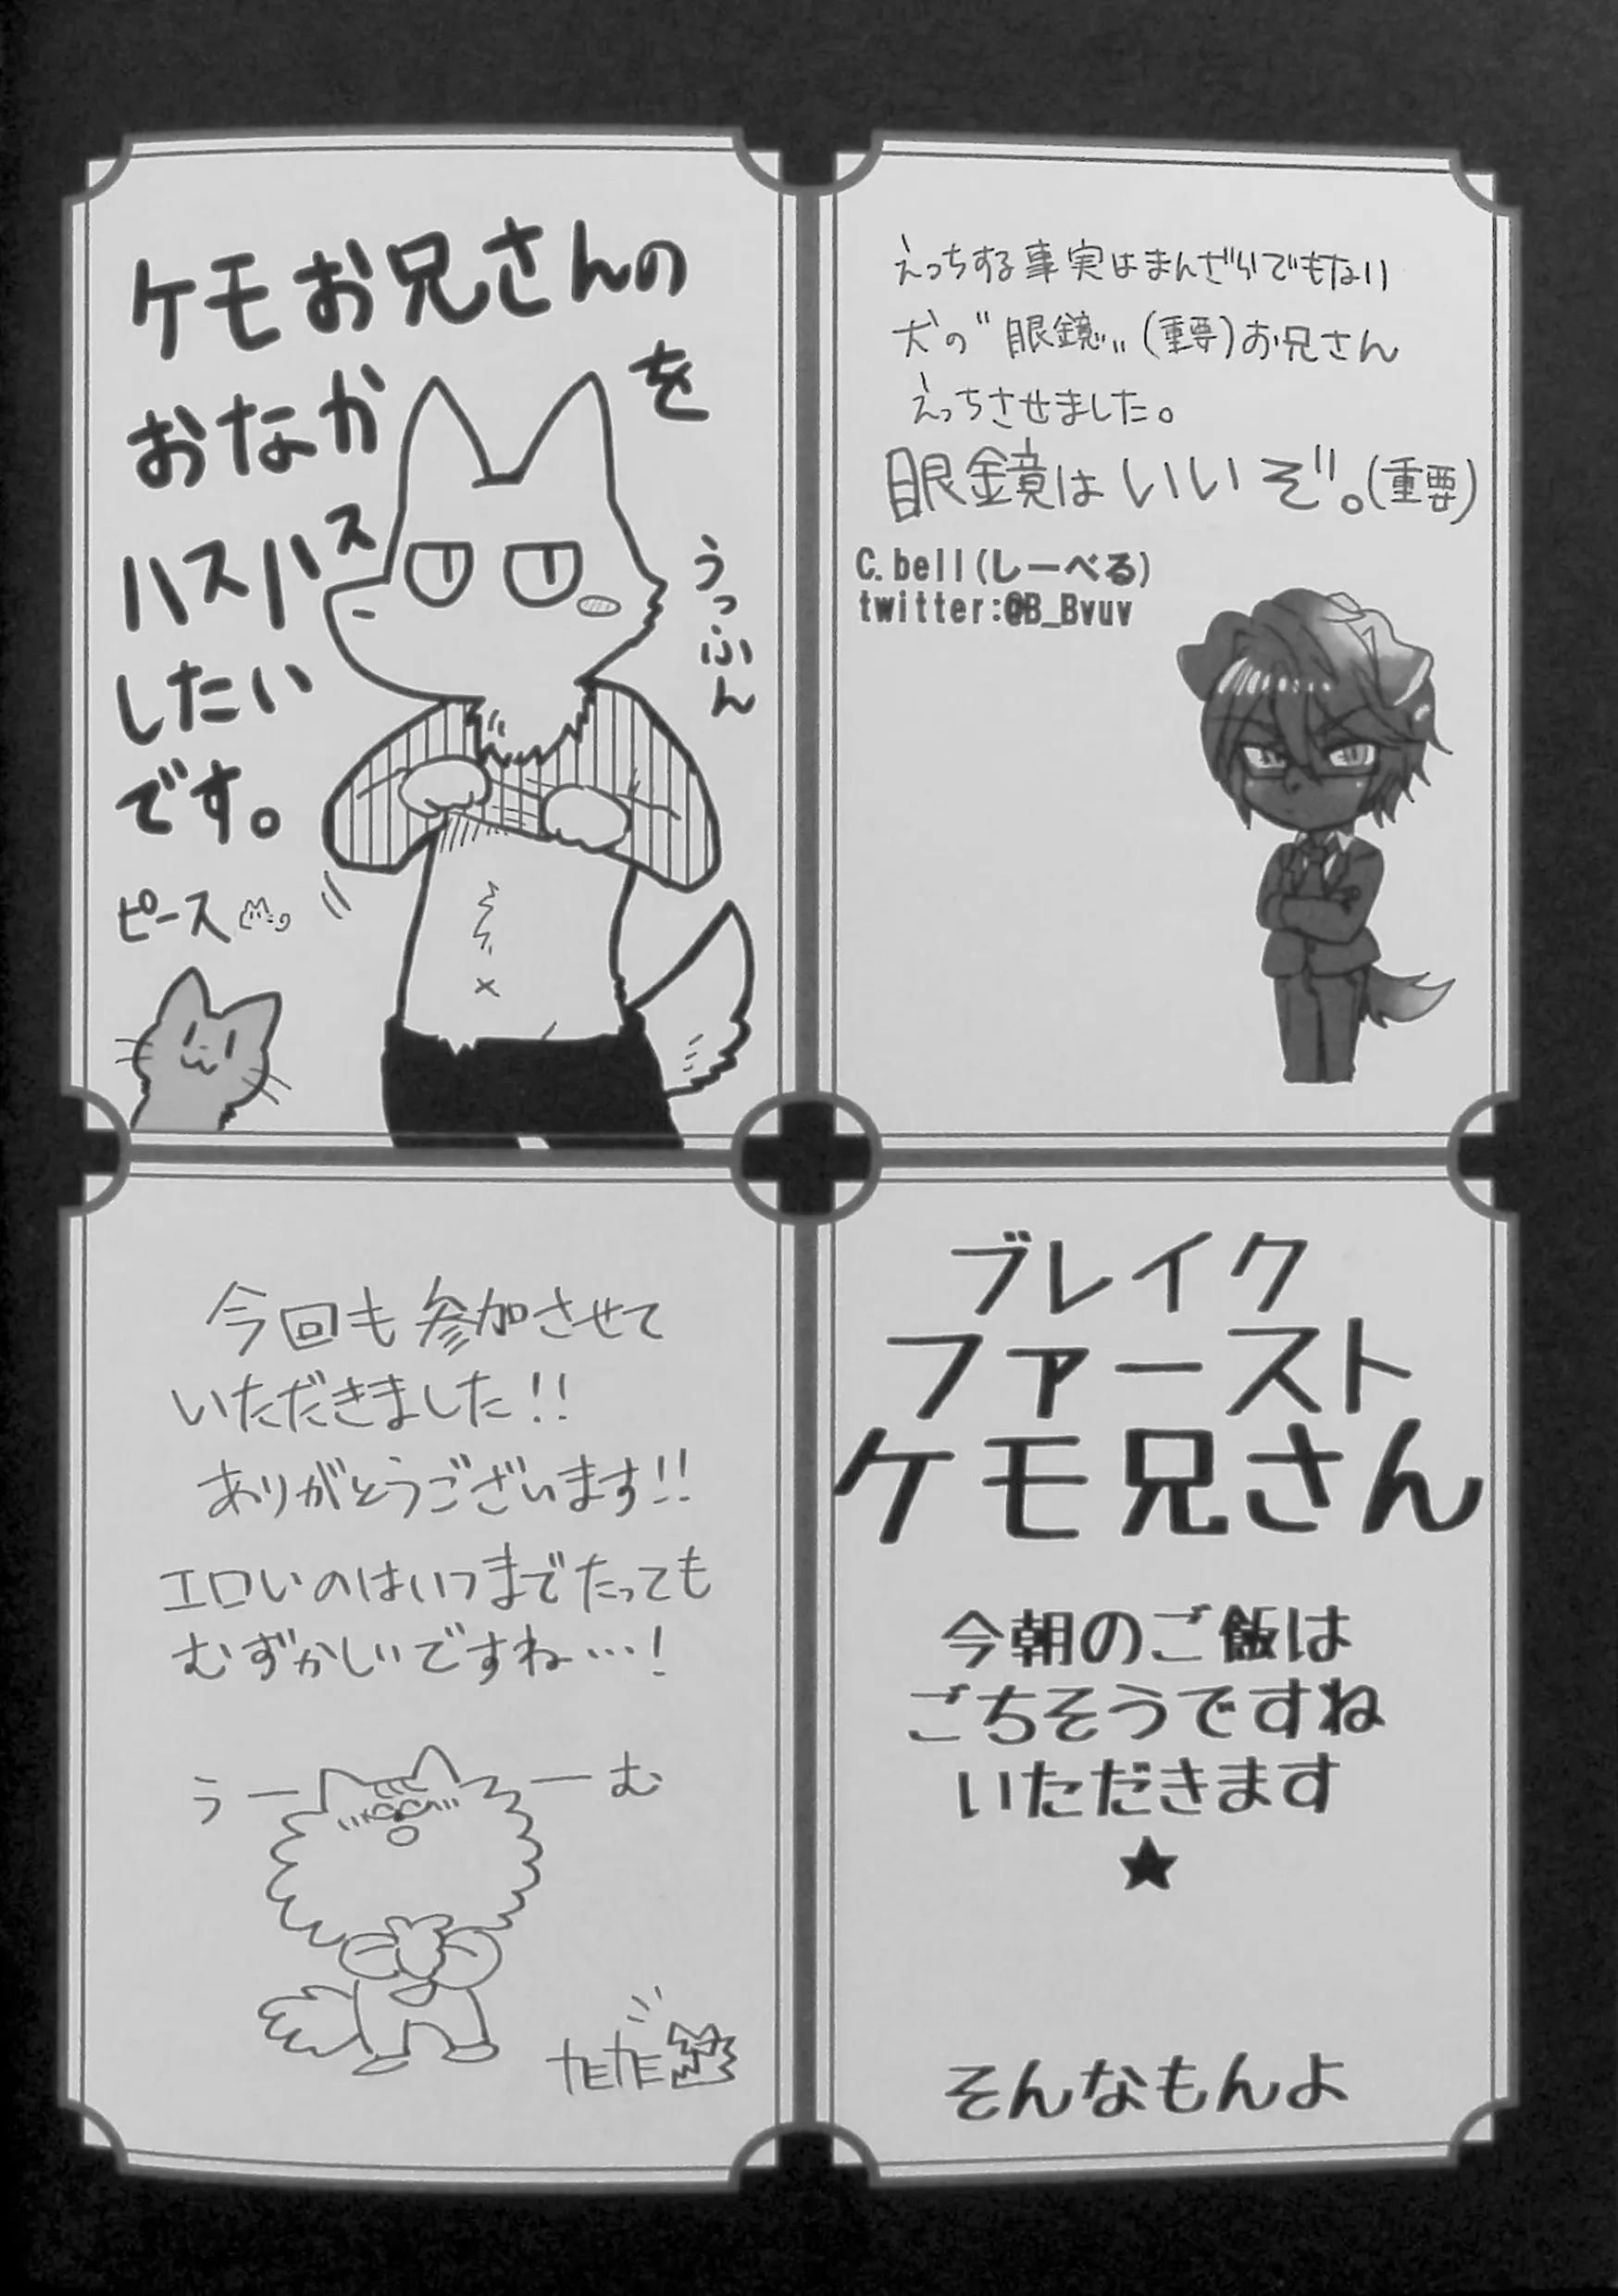 えっちする事実はまんざらでもない
犬の"眼鏡"(重要)お兄さん
えっちさせました。
眼鏡はいいぞ。(重要)
C.bell(しーべる)
twitter:@B_Bvuv
ケモお兄さんの
おなかを
ハスハス
したい
です。
うっふん
ピース
ブレイク
ファースト
ケモ兄さん
今朝のご飯は
ごちそうですね
いただきます
★
そんなもんよ
今回も参加させて
いただきました!!
ありがとうございます!!
エロいのはいつまでたっても
むずかしいですね…!
うーーむ